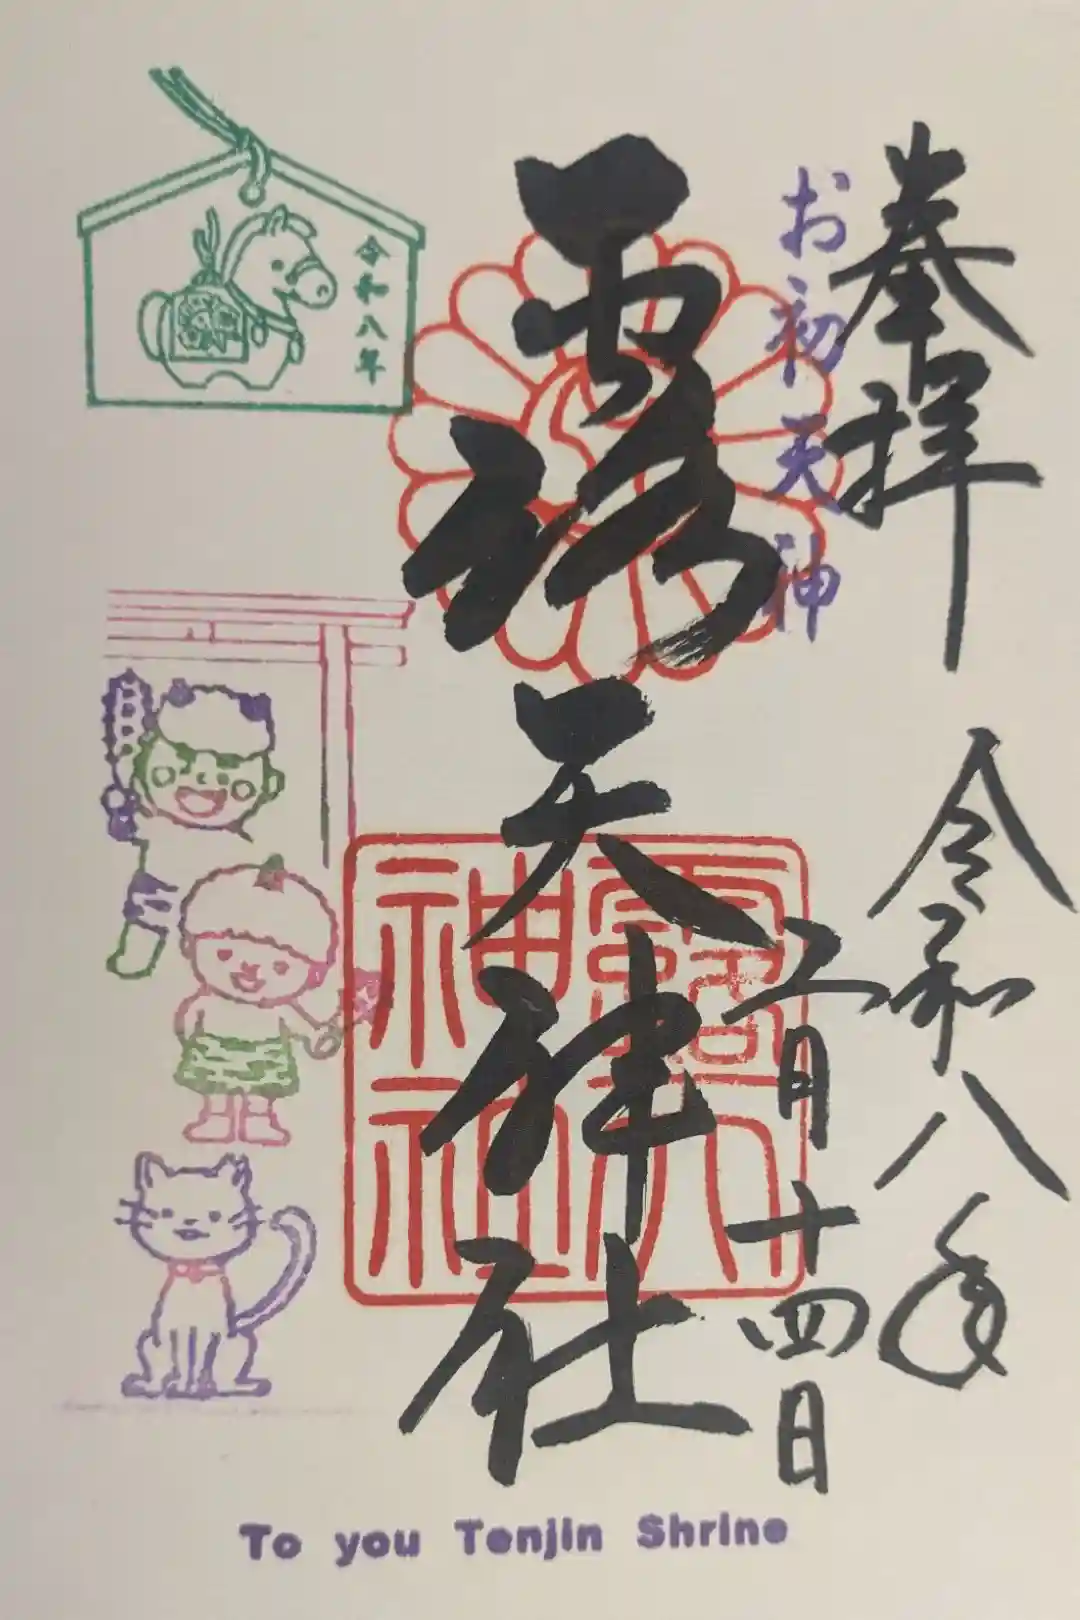 奉拝
お初天神
令和八年
月十四日
露天神社
露天
神社
令和八年
To you Tenjin Shrine